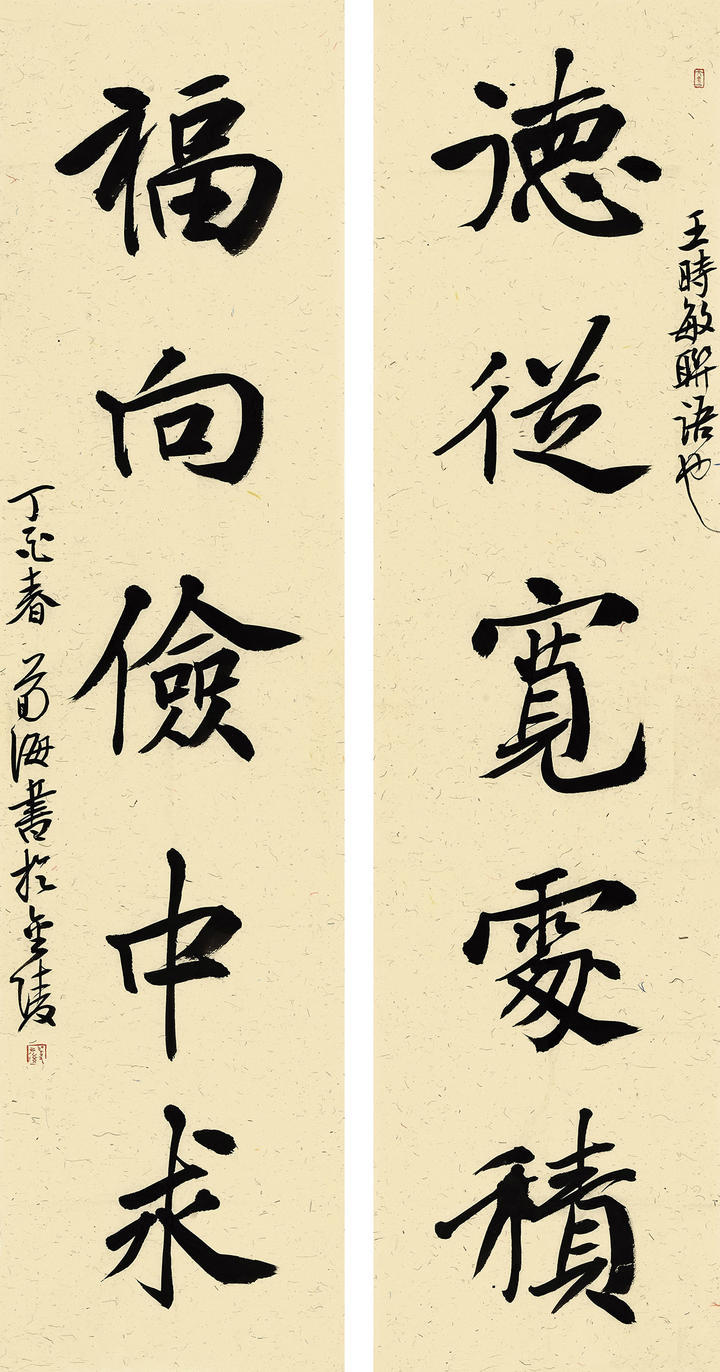 王時敏聯語也
德從寬處積
福向儉中求
丁春海書於金陵